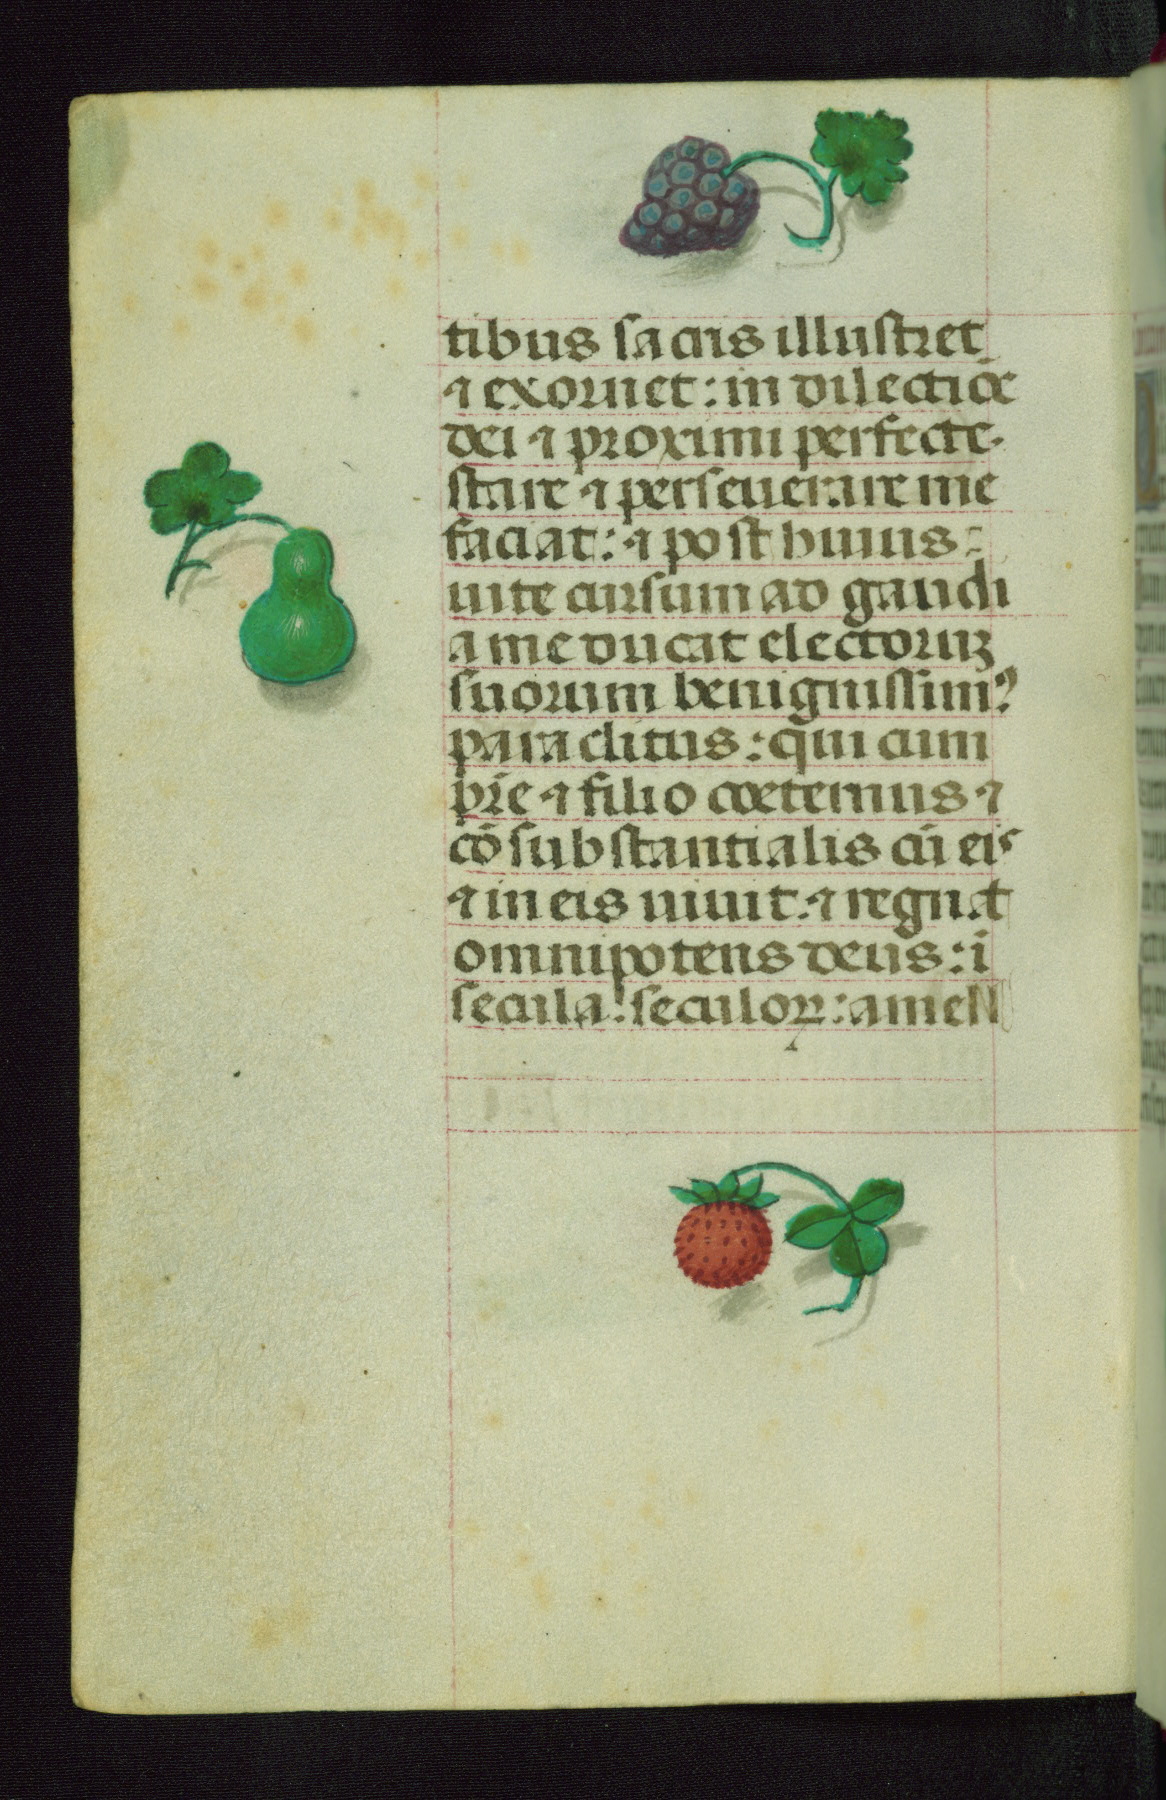 tibus sacris illustret
⁊ exornet: in dilectiōe
dei ⁊ proximi perfecte·
stare ⁊ perseuerare me
faciat: ⁊ post huius
uite cursum ad gaudi
a me ducat electoruꝫ
suorum benignissimꝰ
paraclitus: qui cum
pr̄e ⁊ filio coeternus ⁊
cōsubstantialis cū eis
⁊ in eis uiuit: ⁊ regnat
omnipotens deus: ī
secula! seculoꝝ: amen